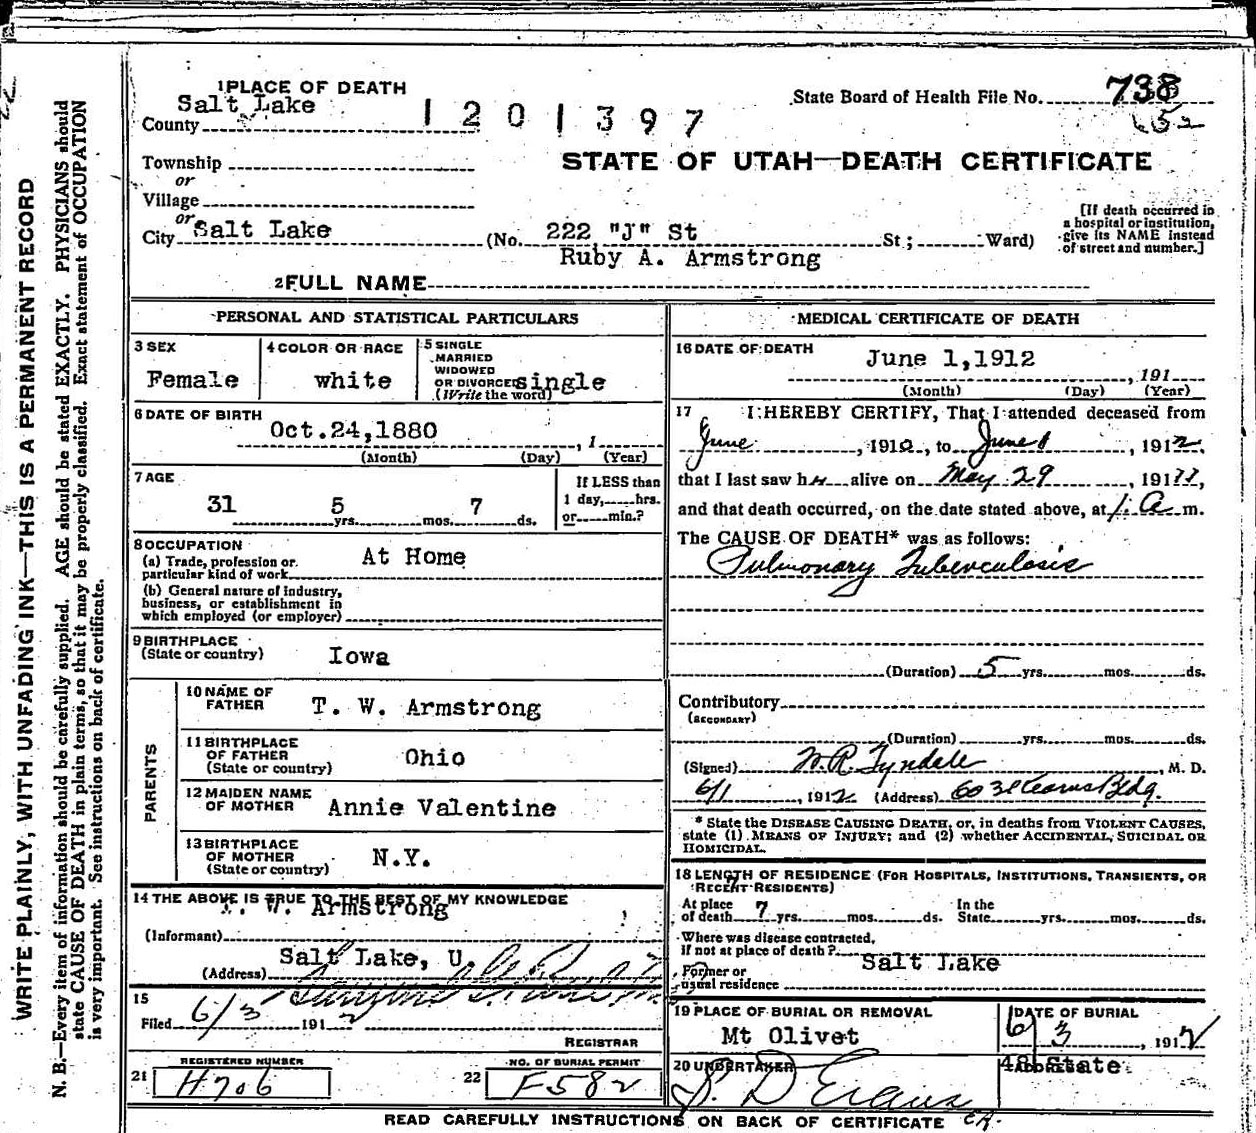 1 PLACE OF DEATH
Salt Lake
County
1201397
State Board of Health File No. 738
652
STATE OF UTAH—DEATH CERTIFICATE
Township
or
Village
or
City Salt Lake (No. 222 "J" St St; Ward)
[If death occurred in a hospital or institution, give its NAME instead of street and number.]
Ruby A. Armstrong
2 FULL NAME
PERSONAL AND STATISTICAL PARTICULARS
3 SEX
Female
4 COLOR OR RACE
white
5 SINGLE
MARRIED
WIDOWED
OR DIVORCED single
(Write the word)
6 DATE OF BIRTH
Oct.24,1880 , 1
(Month) (Day) (Year)
7 AGE
31 5 7
yrs. mos. ds.
If LESS than
1 day, hrs.
or min.?
8 OCCUPATION
(a) Trade, profession or
particular kind of work At Home
(b) General nature of industry,
business, or establishment in
which employed (or employer)
9 BIRTHPLACE
(State or country) Iowa
PARENTS
10 NAME OF
FATHER T. W. Armstrong
11 BIRTHPLACE
OF FATHER
(State or country) Ohio
12 MAIDEN NAME
OF MOTHER Annie Valentine
13 BIRTHPLACE
OF MOTHER
(State or country) N.Y.
14 THE ABOVE IS TRUE TO THE BEST OF MY KNOWLEDGE
T. W. Armstrong
(Informant)
Salt Lake, U.
(Address)
15
Filed 6/3 1912
REGISTRAR
REGISTERED NUMBER
21 H706
NO. OF BURIAL PERMIT
22 F582
MEDICAL CERTIFICATE OF DEATH
16 DATE OF DEATH
June 1,1912
, 191
(Month) (Day) (Year)
17 I HEREBY CERTIFY, That I attended deceased from
June , 1910, to June 1 , 1912,
that I last saw h alive on May 29 , 191,
and that death occurred, on the date stated above, at 1. a m.
The CAUSE OF DEATH* was as follows:
Pulmonary Tuberculosis
(Duration) 5 yrs. mos. ds.
Contributory
(SECONDARY)
(Duration) yrs. mos. ds.
(Signed) W. R. Tyndale , M. D.
6/1 , 1912 (Address) 603 Kearns Bldg.
* State the DISEASE CAUSING DEATH, or, in deaths from VIOLENT CAUSES,
state (1) MEANS OF INJURY; and (2) whether ACCIDENTAL, SUICIDAL OR
HOMICIDAL.
18 LENGTH OF RESIDENCE (FOR HOSPITALS, INSTITUTIONS, TRANSIENTS, OR
RECENT RESIDENTS)
At place
of death 7 yrs. mos. ds.
In the
State yrs. mos. ds.
Where was disease contracted,
if not at place of death?
Salt Lake
Former or
usual residence
19 PLACE OF BURIAL OR REMOVAL
Mt Olivet
DATE OF BURIAL
6/3 , 1912
20 UNDERTAKER
S. D Evans
48 State
READ CAREFULLY INSTRUCTIONS ON BACK OF CERTIFICATE
WRITE PLAINLY, WITH UNFADING INK—THIS IS A PERMANENT RECORD
N. B.—Every item of information should be carefully supplied. AGE should be stated EXACTLY. PHYSICIANS should
state CAUSE OF DEATH in plain terms, so that it may be properly classified. Exact statement of OCCUPATION
is very important. See instructions on back of certificate.